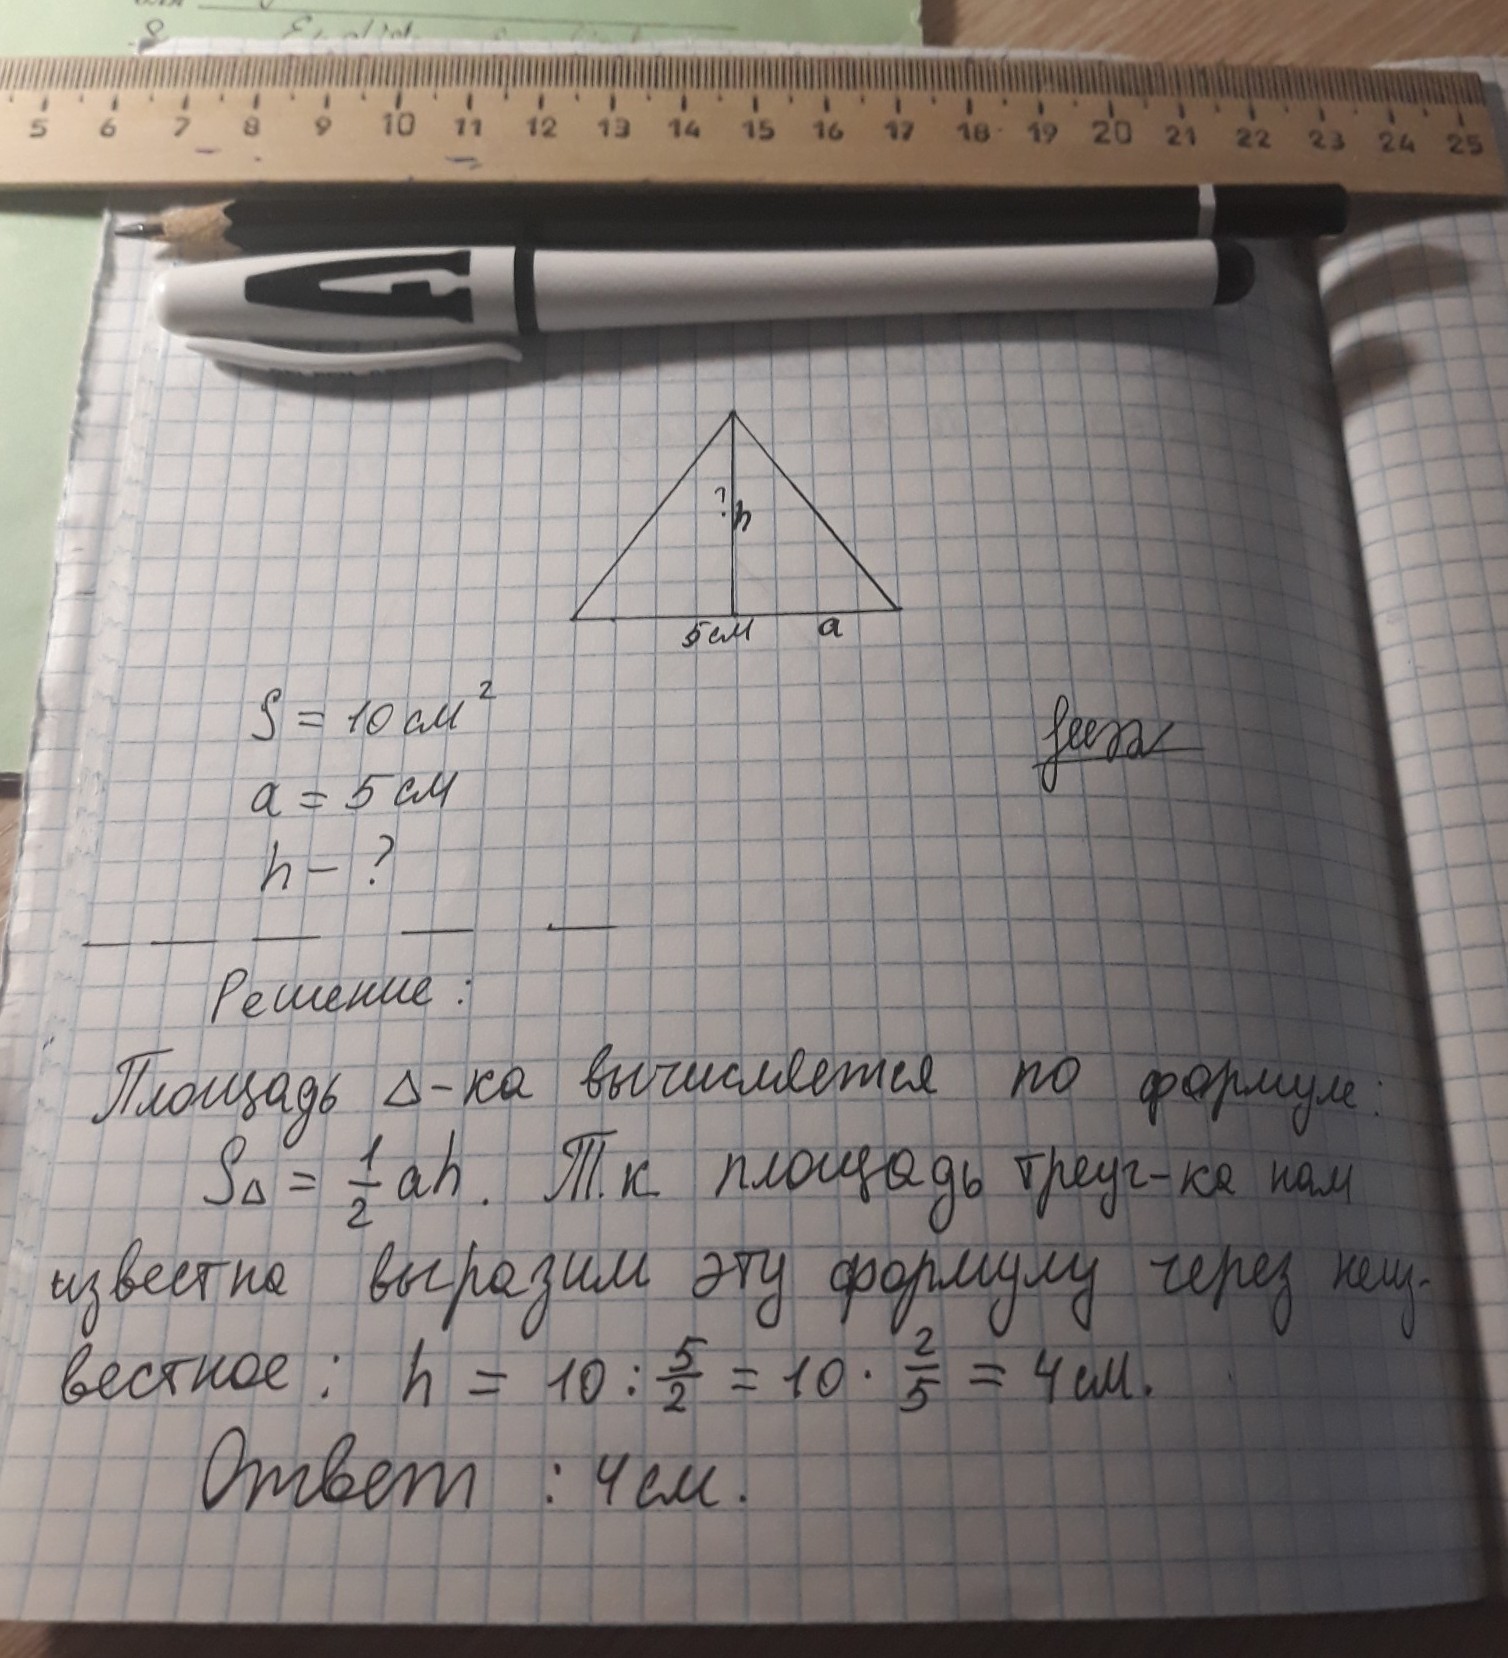 5 6 7 8 9 10 11 12 13 14 15 16 17 18 19 20 21 22 23 24 25
? h
5 см a
S = 10 см²
a = 5 см
h - ?
Решение:
Площадь Δ-ка вычисляется по формуле:
SΔ = 1/2 ah. Т.к площадь треуг-ка нам
известна выразим эту формулу через неиз-
вестное: h = 10 : 5/2 = 10 · 2/5 = 4 см.
Ответ : 4 см.